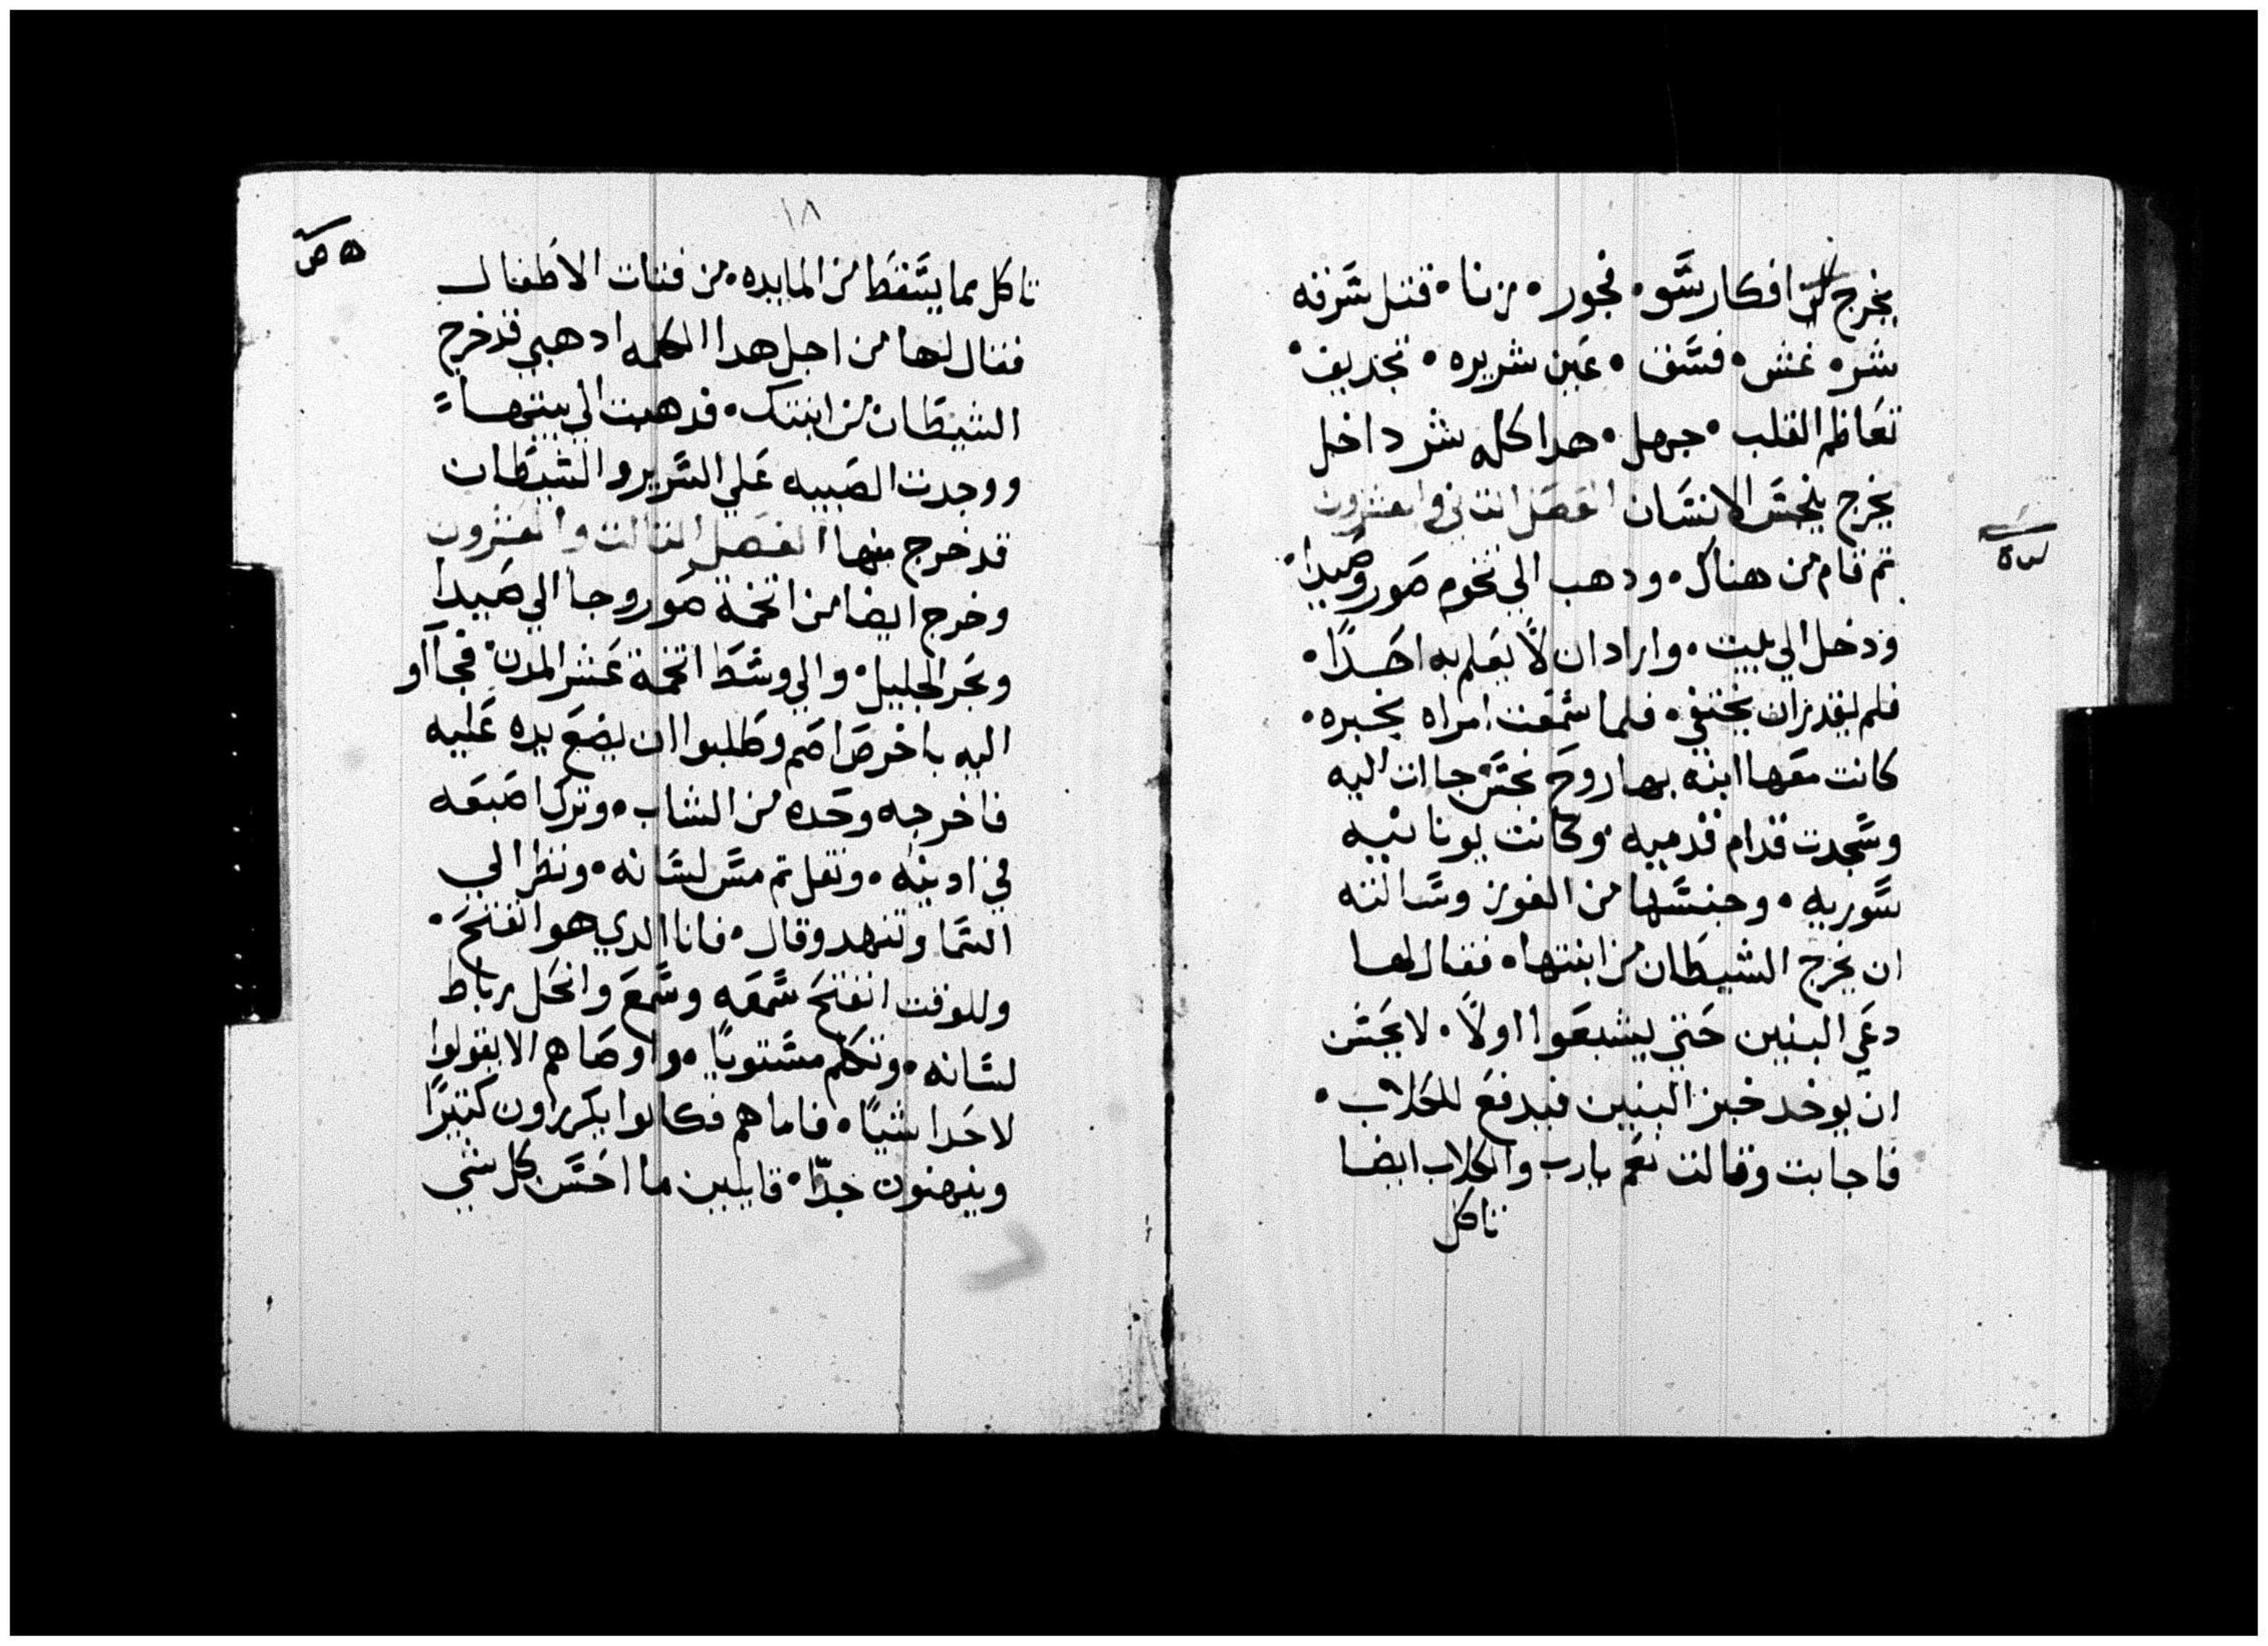 يخرج كل افكار سو • فجور • زنا • قتل سرقه
شر • غش • فسق • عين شريره • تجديف •
تعاظم القلب • جهل • هدا كله شر داخل
يخرج ينجس الانسان الفصل التاني والعشرون
تم قام من هناك • ودهب الي تخوم صور وصيدا •
ودخل الي بيت • واراد ان لا يعلم به احدًا •
فلم يقدر ان يختفي • فلما سمعت امراه بخبره •
كانت معها ابنه بها روح نجس جاات اليه
وسجدت قدام قدميه • وكانت يونانيه
سوريه • وجنسها من الغور وسالته
ان يخرج الشيطان من ابنتها • فقال لها
دعي البنين حتي يشبعوا اولًا • لا يحسن
ان يوخد خبز البنين فيدفع للكلاب •
فاجابت وقالت نعم يارب والكلاب ايضا
تاكل
١٨
تاكل مما يسقط من المايده • من فتات الاطفال
فقال لها من اجل هدا الكلمه ادهبي قد خرج
الشيطان من ابنتك • فدهبت الي بيتها
ووجدت الصبيه علي السرير والشيطان
قد خرج منها الفصل التالت والعشرون
وخرج ايضا من اتخمة صور وجا الي صيدا
وبحر الجليل • والي وسط اتخمة عشر المدن • فجآاو
اليه باخرص اصم وطلبوا ان يضع يده عليه
فاخرجه وحده من الشاب • وترك اصبعه
في ادينه • وتفل تم مس لسانه • ونظر الي
السما وتنهد وقال • فانا الدي هو انفتح •
وللوقت انفتح سمعه وسمع وانحل رباط
لسانه • وتكلم مستويًا • واوصاهم الا يقولوا
لاحدا شيًا • فاما هم فكانوا يكررون كتيرًا
ويبهتون جدّا • قايلين ما احسن كل شي